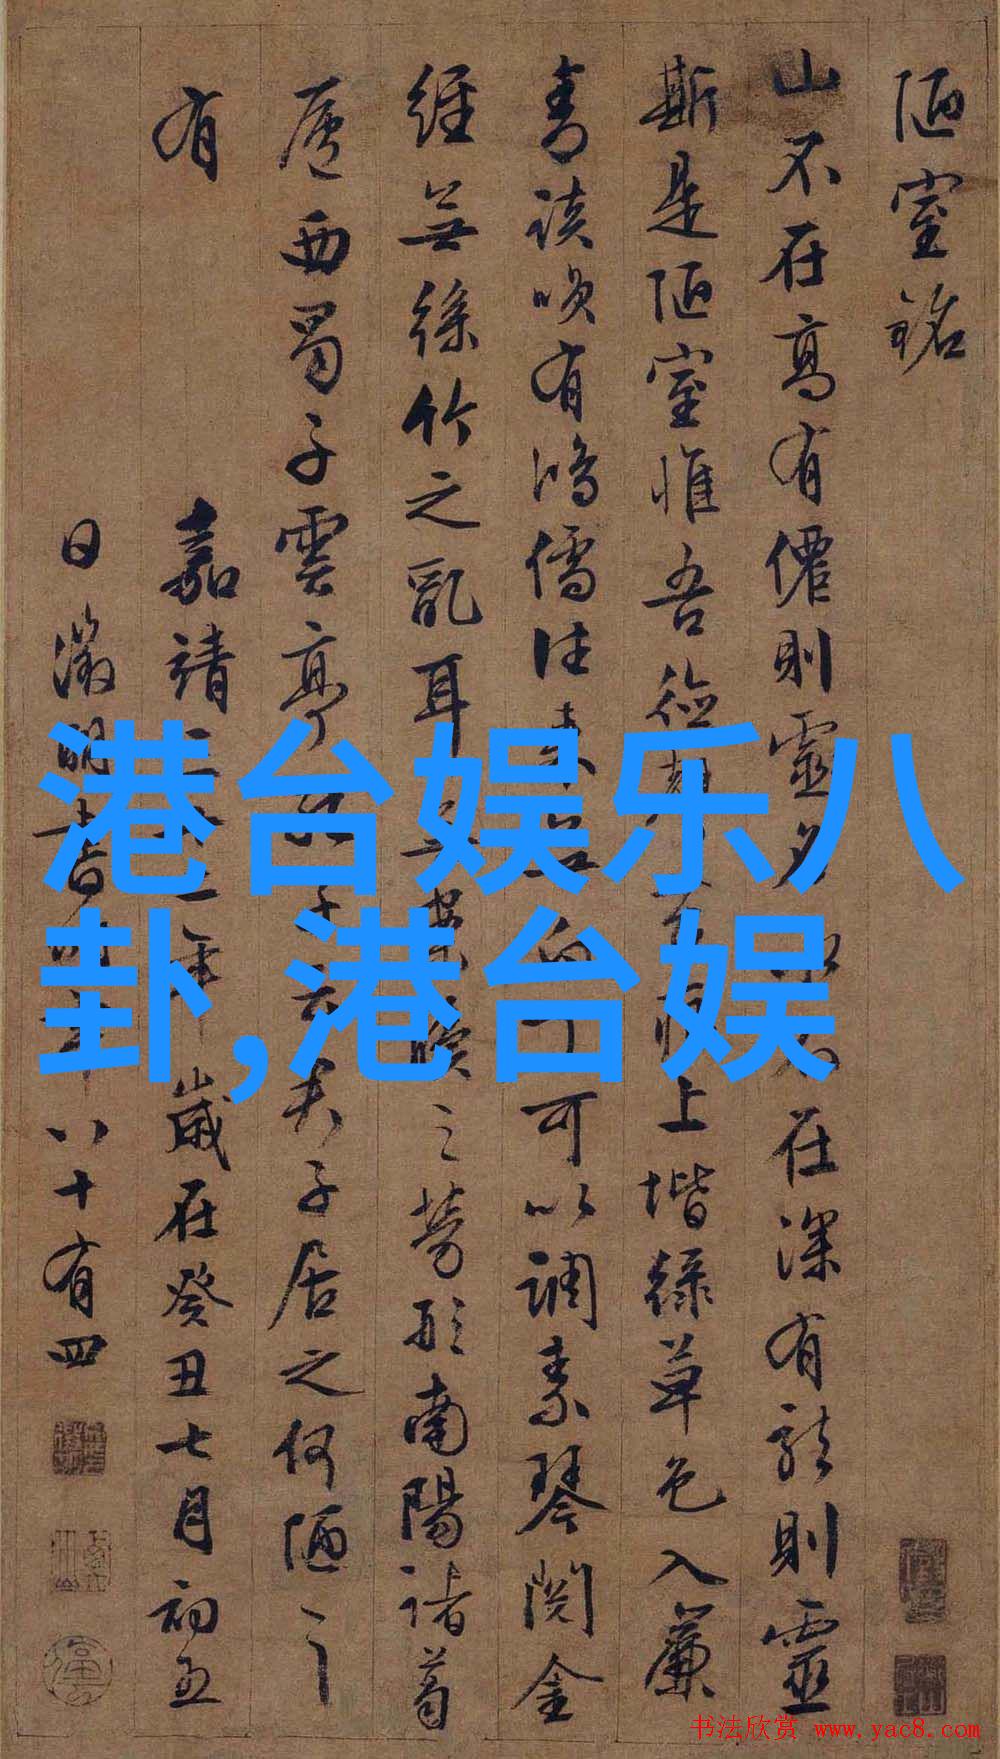 陋室銘
山不在高有僊則靈水不在深有龍則靈
斯是陋室惟吾德馨上堦綠草色入簾
青談唉有鴻儒往來白丁可以調素琴閱金
經無絲竹之亂耳無案牘之勞形南陽諸葛
廬西蜀子雲亭子居之何陋之
有
嘉靖三十二年歲在癸丑七月初五
日徵明書時年八十有四
港台娱乐八
卦,港台娱
书法欣赏 www.yac8.com